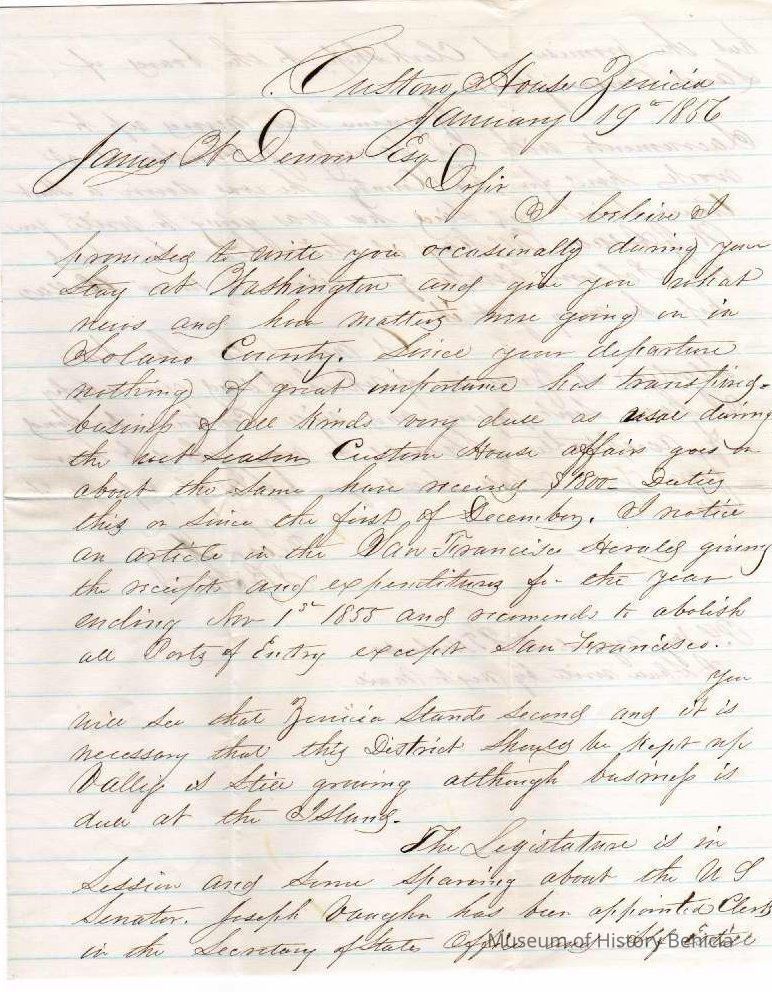 Custom House Benicia
January 19th 1856
James W Denver Esq
Dr Sir
I beleive I
promised to write you occasionally during your
stay at Washington and give you what
news and how matters were going on in
Solano County. Since your departure
nothing of great importance has transpired-
business of all kinds very dull as usal during
the wet season Custom House affairs goes on
about the same have received $1800- Duties
this or since the first of December. I notice
an article in the San Francisco Herald giving
the receipts and expenditures for the year
ending Nov 1st 1855 and recomends to abolish
all Ports of Entry except San Francisco.
You
will see that Benicia stands second and it is
necessary that this District should be kept up
Vallejo is still growing although business is
dull at the Island.
The Legislature is in
session and some sparing about the U S
Senator. Joseph Vaughn has been appointed Clerk
in the Secretary of State Office and
Museum of History Benicia